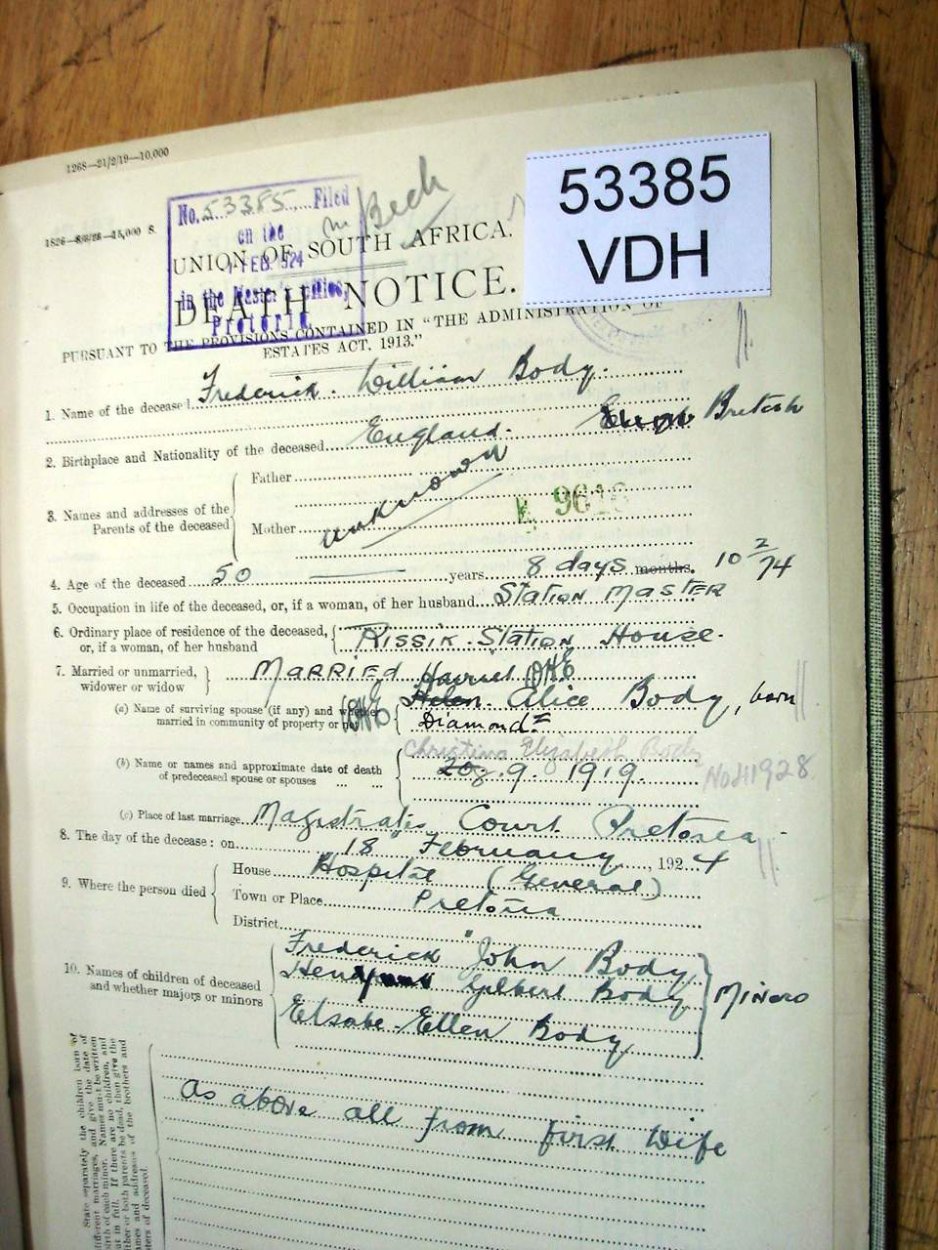 1268—21/2/19—10,000
1826—8/8/23—15,000 S.
53385
VDH
No. 53385 Filed
on the
FEB. 1924
in the Master's Office,
Pretoria
UNION OF SOUTH AFRICA.
DEATH NOTICE.
PURSUANT TO THE PROVISIONS CONTAINED IN "THE ADMINISTRATION OF
ESTATES ACT, 1913."
1. Name of the deceased Frederick William Body.
2. Birthplace and Nationality of the deceased England. British
3. Names and addresses of the Parents of the deceased
Father
unknown
Mother
4. Age of the deceased 50 years 8 days months. 10 2/74
5. Occupation in life of the deceased, or, if a woman, of her husband Station Master
6. Ordinary place of residence of the deceased, or, if a woman, of her husband Rissik Station House.
7. Married or unmarried, widower or widow Married Harriet
(a) Name of surviving spouse (if any) and whether married in community of property or not Helen Alice Body, born
Diamond
(b) Name or names and approximate date of death of predeceased spouse or spouses Christina Elizabeth Body
9. 1919. No 41928
(c) Place of last marriage Magistrates Court Pretoria
8. The day of the decease: on 18 February, 1924
9. Where the person died
House Hospital (General)
Town or Place Pretoria
District
10. Names of children of deceased and whether majors or minors
Frederick John Body
Henry Gilbert Body
Elsabe Ellen Body
Minors
As above all from first wife